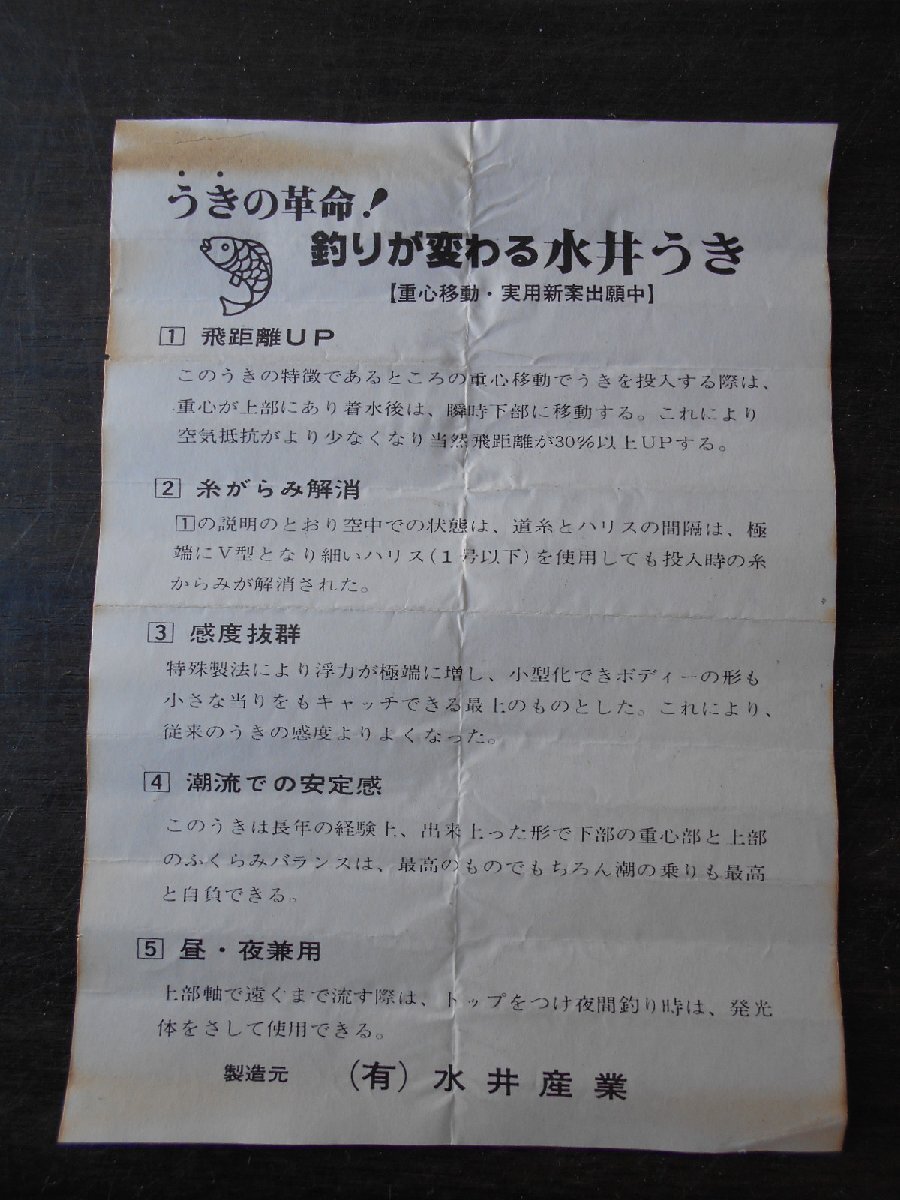 うきの革命!
釣りが変わる水井うき
【重心移動・実用新案出願中】
1 飛距離UP
このうきの特徴であるところの重心移動でうきを投入する際は、
重心が上部にあり着水後は、瞬時下部に移動する。これにより
空気抵抗がより少なくなり当然飛距離が30%以上UPする。
2 糸がらみ解消
1の説明のとおり空中での状態は、道糸とハリスの間隔は、極
端にV型となり細いハリス(1号以下)を使用しても投入時の糸
からみが解消された。
3 感度抜群
特殊製法により浮力が極端に増し、小型化できボディーの形も
小さな当りをもキャッチできる最上のものとした。これにより、
従来のうきの感度よりよくなった。
4 潮流での安定感
このうきは長年の経験上、出来上った形で下部の重心部と上部
のふくらみバランスは、最高のものでもちろん潮の乗りも最高
と自負できる。
5 昼・夜兼用
上部軸で遠くまで流す際は、トップをつけ夜間釣り時は、発光
体をさして使用できる。
製造元 (有)水井産業